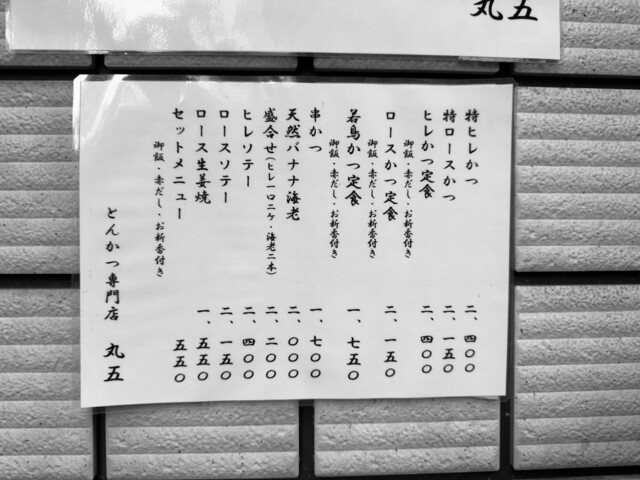 丸五
特ヒレかつ 二、四〇〇
特ロースかつ 二、一五〇
ヒレかつ定食 二、四〇〇
御飯・赤だし・お新香付き
ロースかつ定食 二、一五〇
御飯・赤だし・お新香付き
若鳥かつ定食 一、七五〇
御飯・赤だし・お新香付き
串かつ 一、七〇〇
天然バナナ海老 二、〇〇〇
盛合せ(ヒレ一口二ケ・海老二本) 二、二〇〇
ヒレソテー 二、四〇〇
ロースソテー 二、一五〇
ロース生姜焼 一、五五〇
セットメニュー 五五〇
御飯・赤だし・お新香付き
とんかつ専門店 丸五